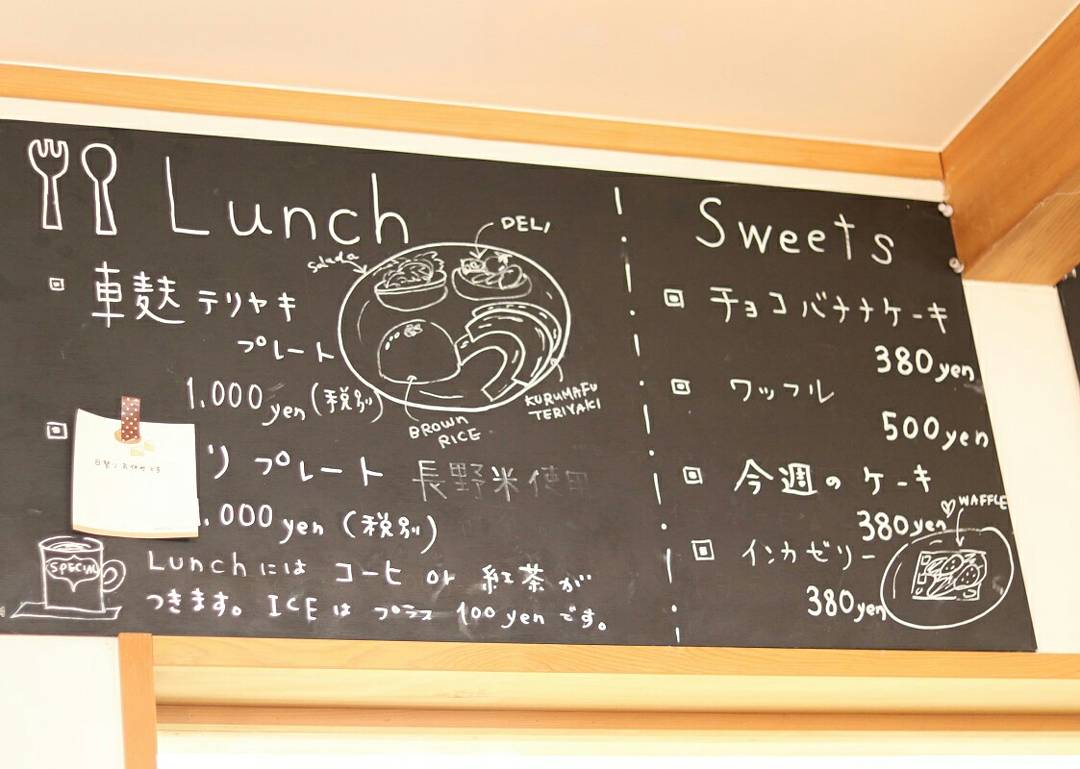 Lunch
車麸 テリヤキ
プレート
1.000 yen (税別)
リ プレート 長野米使用
.000 yen (税別)
Lunchには コーヒ or 紅茶が
つきます。 ICE は プラス 100 yen です。
SPECIAL
Salada
DELI
KURUMAFU
TERIYAKI
BROWN
RICE
Sweets
チョコバナナケーキ
380 yen
ワッフル
500 yen
今週の ケーキ
380 yen
WAFFLE
インカゼリー
380 yen